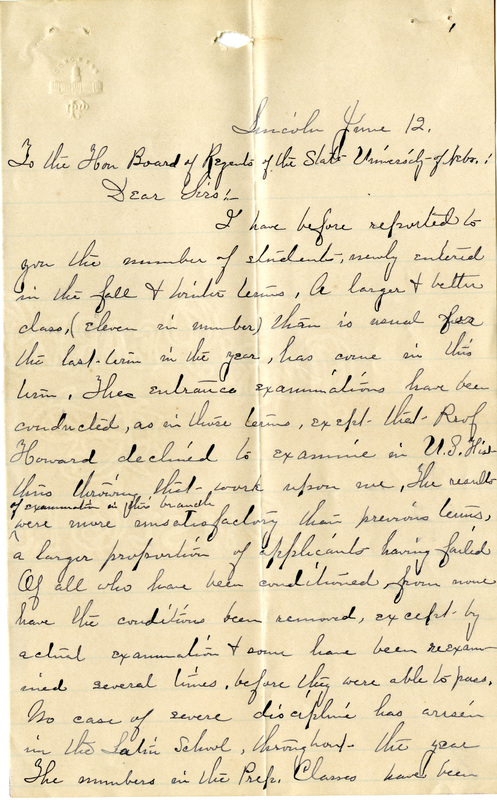 1
Lincoln June 12.
To the Hon Board of Regents of the State University of Nebr.:
Dear Sirs:-
I have before reported to
you the number of students, newly entered
in the fall & winter terms. A larger & better
class, (eleven in number) than is usual for
the last term in the year, has come in this
term. The entrance examinations have been
conducted, as in those terms, except that Prof
Howard declined to examine in U.S. Hist
thus throwing that work upon me. The results
of examination in this branch
were more unsatisfactory than previous terms,
a larger proportion of applicants having failed
Of all who have been conditioned, from none
have the conditions been removed, except by
actual examination & some have been reexam
ined several times, before they were able to pass.
No case of severe discipline has arisen
in the Latin School, throughout the year
The numbers in the Prep. Classes have been